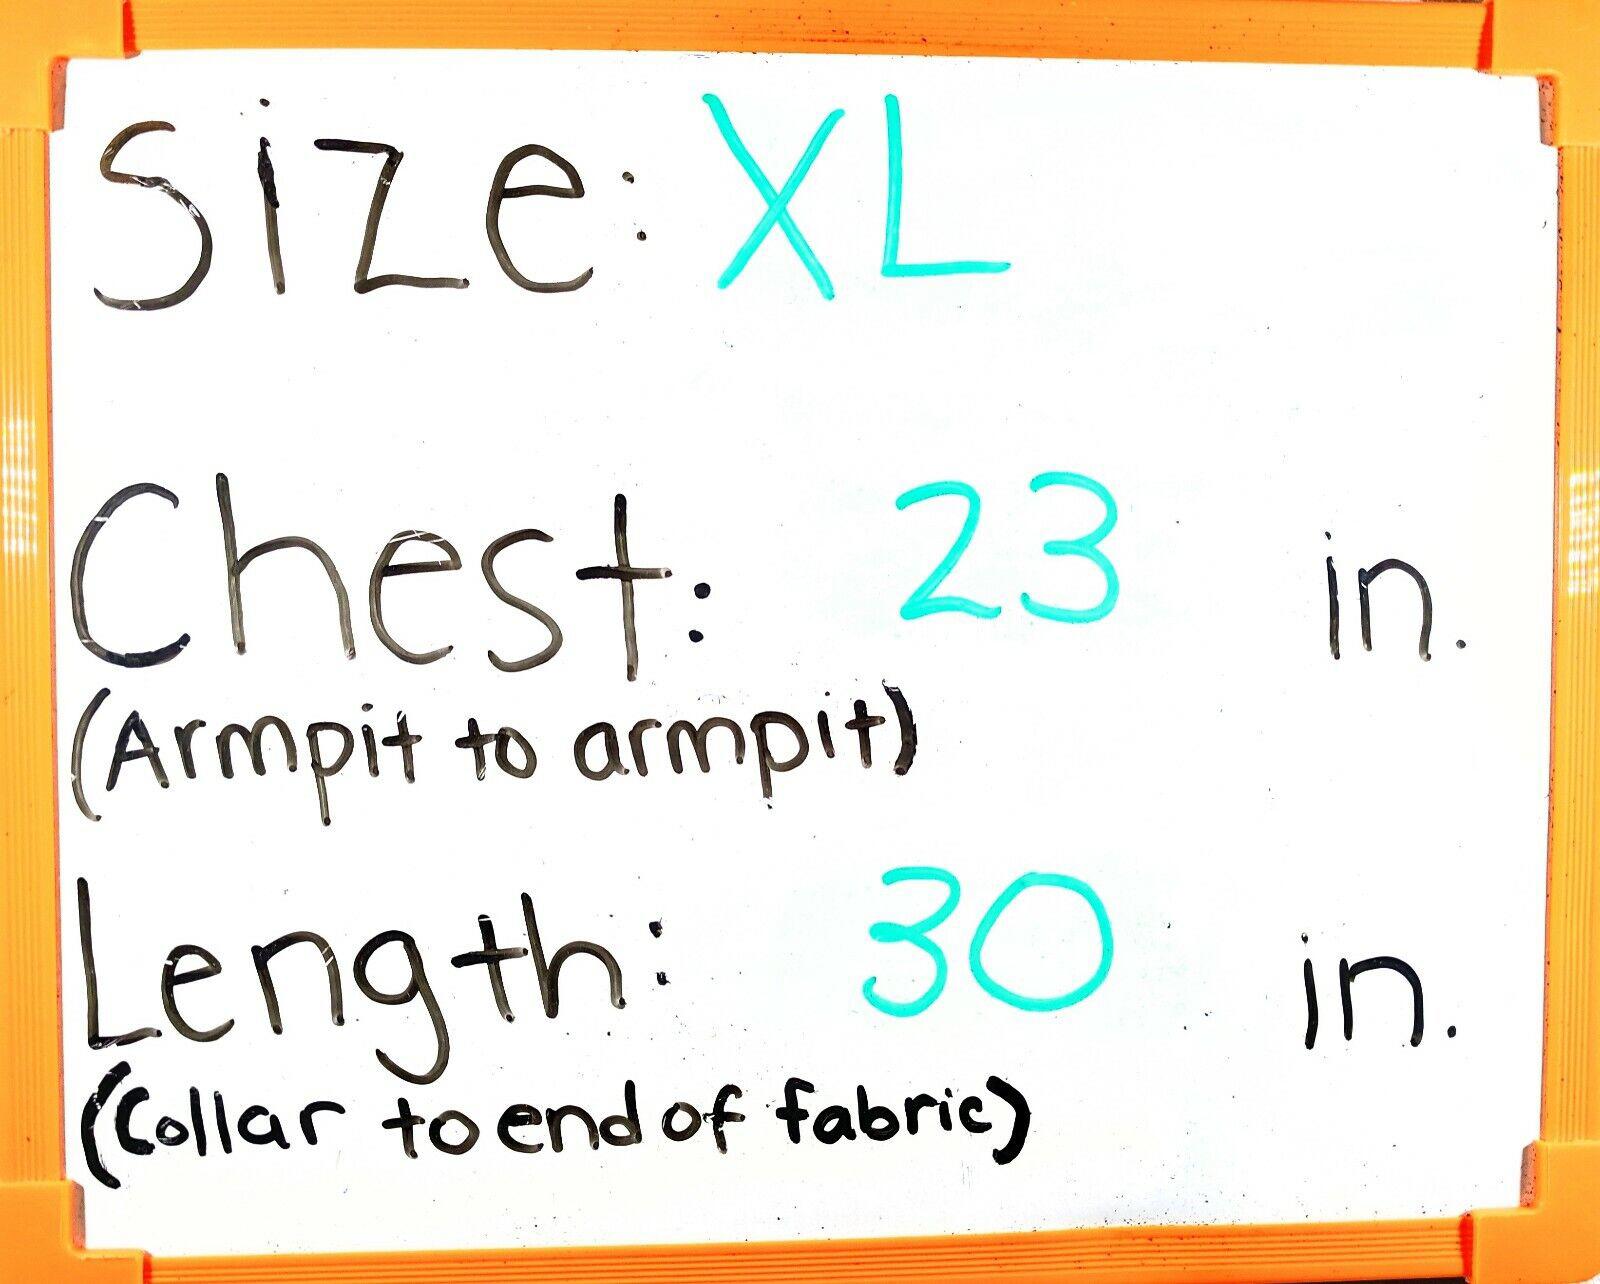 Size: XL
Chest: 23 in.
(Armpit to armpit)
Length: 30 in.
(Collar to end of fabric)